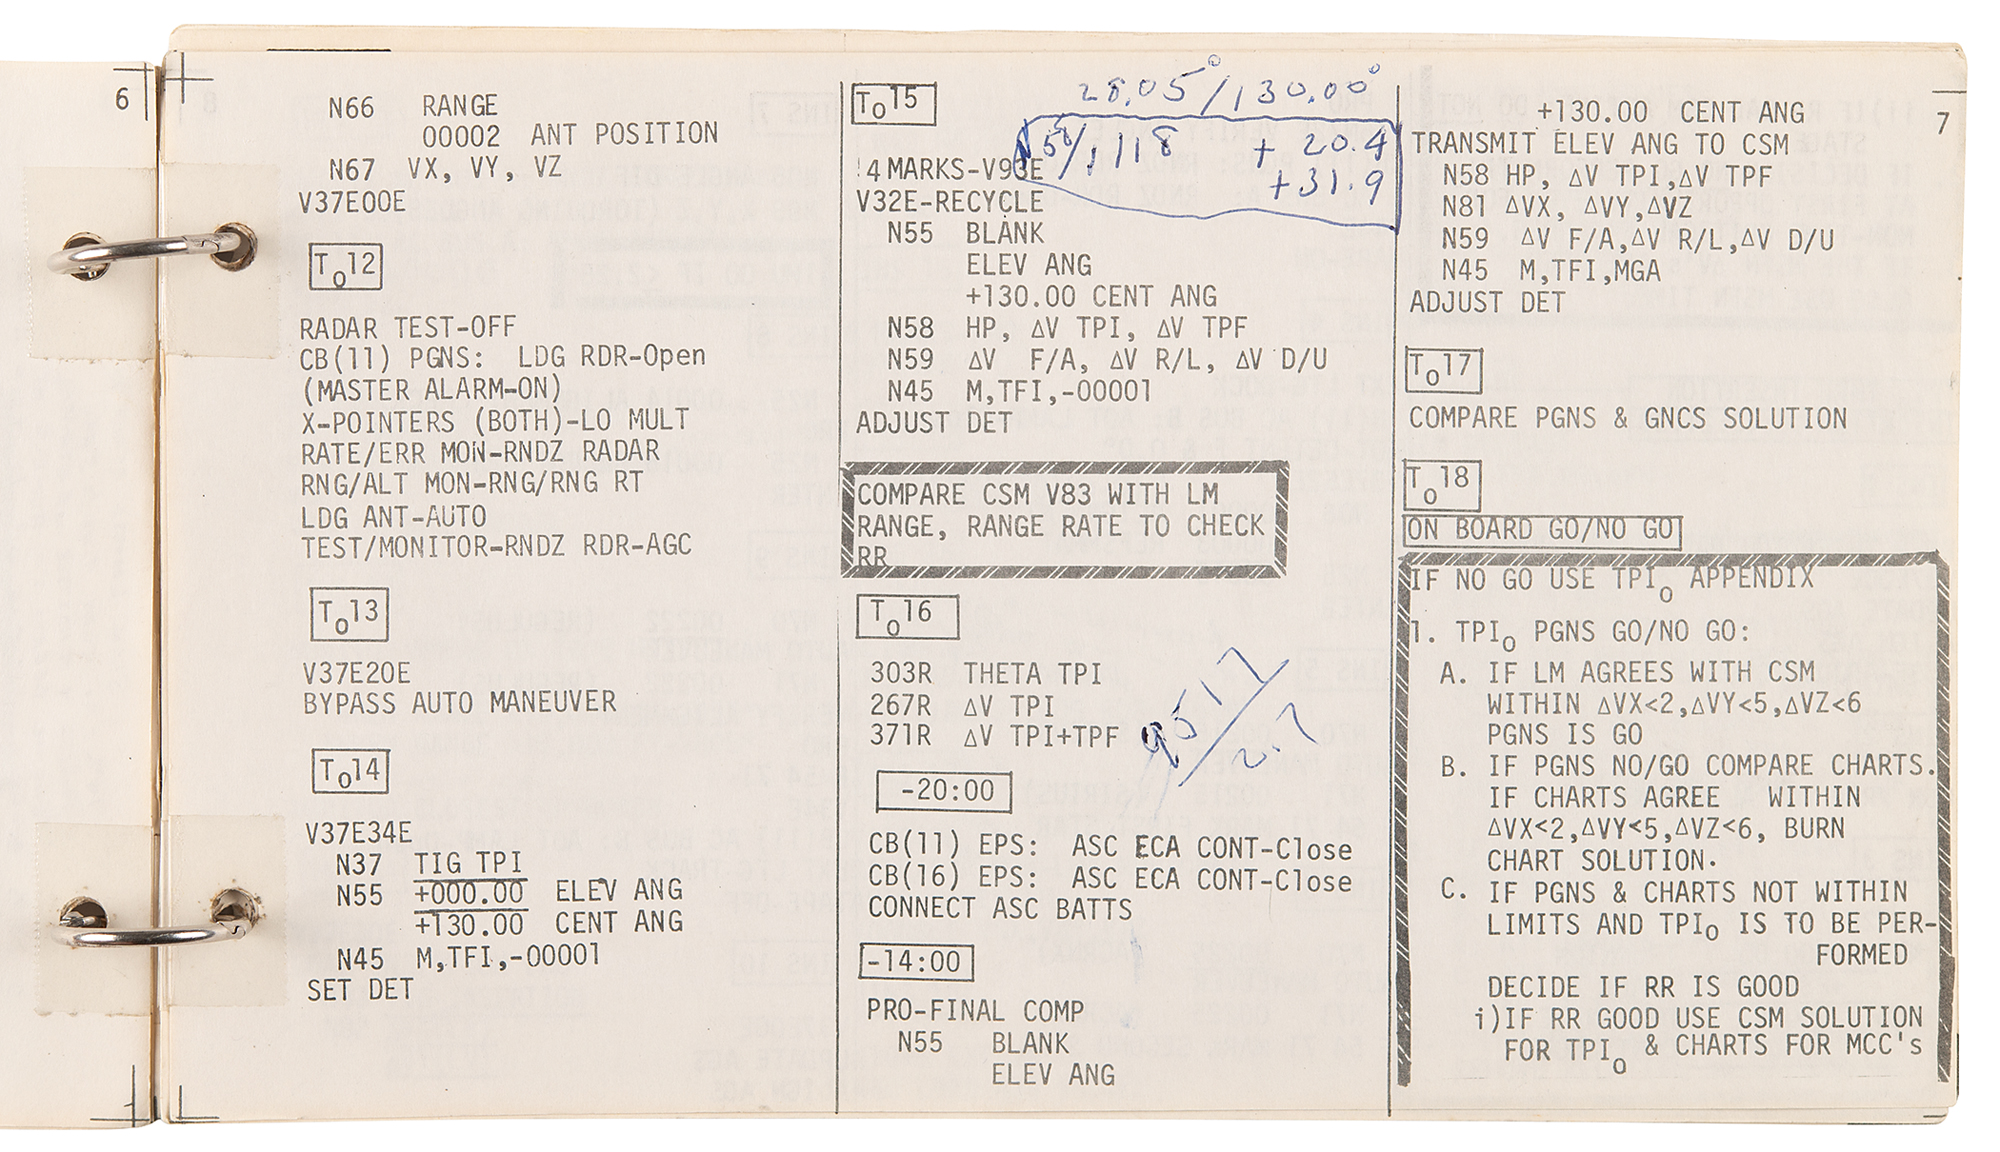 6
N66 RANGE
00002 ANT POSITION
N67 VX, VY, VZ
V37E00E
To12
RADAR TEST-OFF
CB(11) PGNS: LDG RDR-Open
(MASTER ALARM-ON)
X-POINTERS (BOTH)-LO MULT
RATE/ERR MON-RNDZ RADAR
RNG/ALT MON-RNG/RNG RT
LDG ANT-AUTO
TEST/MONITOR-RNDZ RDR-AGC
To13
V37E20E
BYPASS AUTO MANEUVER
To14
V37E34E
N37 TIG TPI
N55 +000.00 ELEV ANG
+130.00 CENT ANG
N45 M,TFI,-00001
SET DET
To15
28.05°/130.00°
N58/1118 + 20.4
+31.9
4 MARKS-V93E
V32E-RECYCLE
N55 BLANK
ELEV ANG
+130.00 CENT ANG
N58 HP, ΔV TPI, ΔV TPF
N59 ΔV F/A, ΔV R/L, ΔV D/U
N45 M,TFI,-00001
ADJUST DET
COMPARE CSM V83 WITH LM
RANGE, RANGE RATE TO CHECK
RR
To16
303R THETA TPI
267R ΔV TPI
371R ΔV TPI+TPF
-20:00
CB(11) EPS: ASC ECA CONT-Close
CB(16) EPS: ASC ECA CONT-Close
CONNECT ASC BATTS
-14:00
PRO-FINAL COMP
N55 BLANK
ELEV ANG
7
+130.00 CENT ANG
TRANSMIT ELEV ANG TO CSM
N58 HP, ΔV TPI,ΔV TPF
N81 ΔVX, ΔVY,ΔVZ
N59 ΔV F/A,ΔV R/L,ΔV D/U
N45 M,TFI,MGA
ADJUST DET
To17
COMPARE PGNS & GNCS SOLUTION
To18
ON BOARD GO/NO GO
IF NO GO USE TPIo APPENDIX
1. TPIo PGNS GO/NO GO:
A. IF LM AGREES WITH CSM
WITHIN ΔVX<2,ΔVY<5,ΔVZ<6
PGNS IS GO
B. IF PGNS NO/GO COMPARE CHARTS.
IF CHARTS AGREE WITHIN
ΔVX<2,ΔVY<5,ΔVZ<6, BURN
CHART SOLUTION.
C. IF PGNS & CHARTS NOT WITHIN
LIMITS AND TPIo IS TO BE PER-
FORMED
DECIDE IF RR IS GOOD
i)IF RR GOOD USE CSM SOLUTION
FOR TPIo & CHARTS FOR MCC's